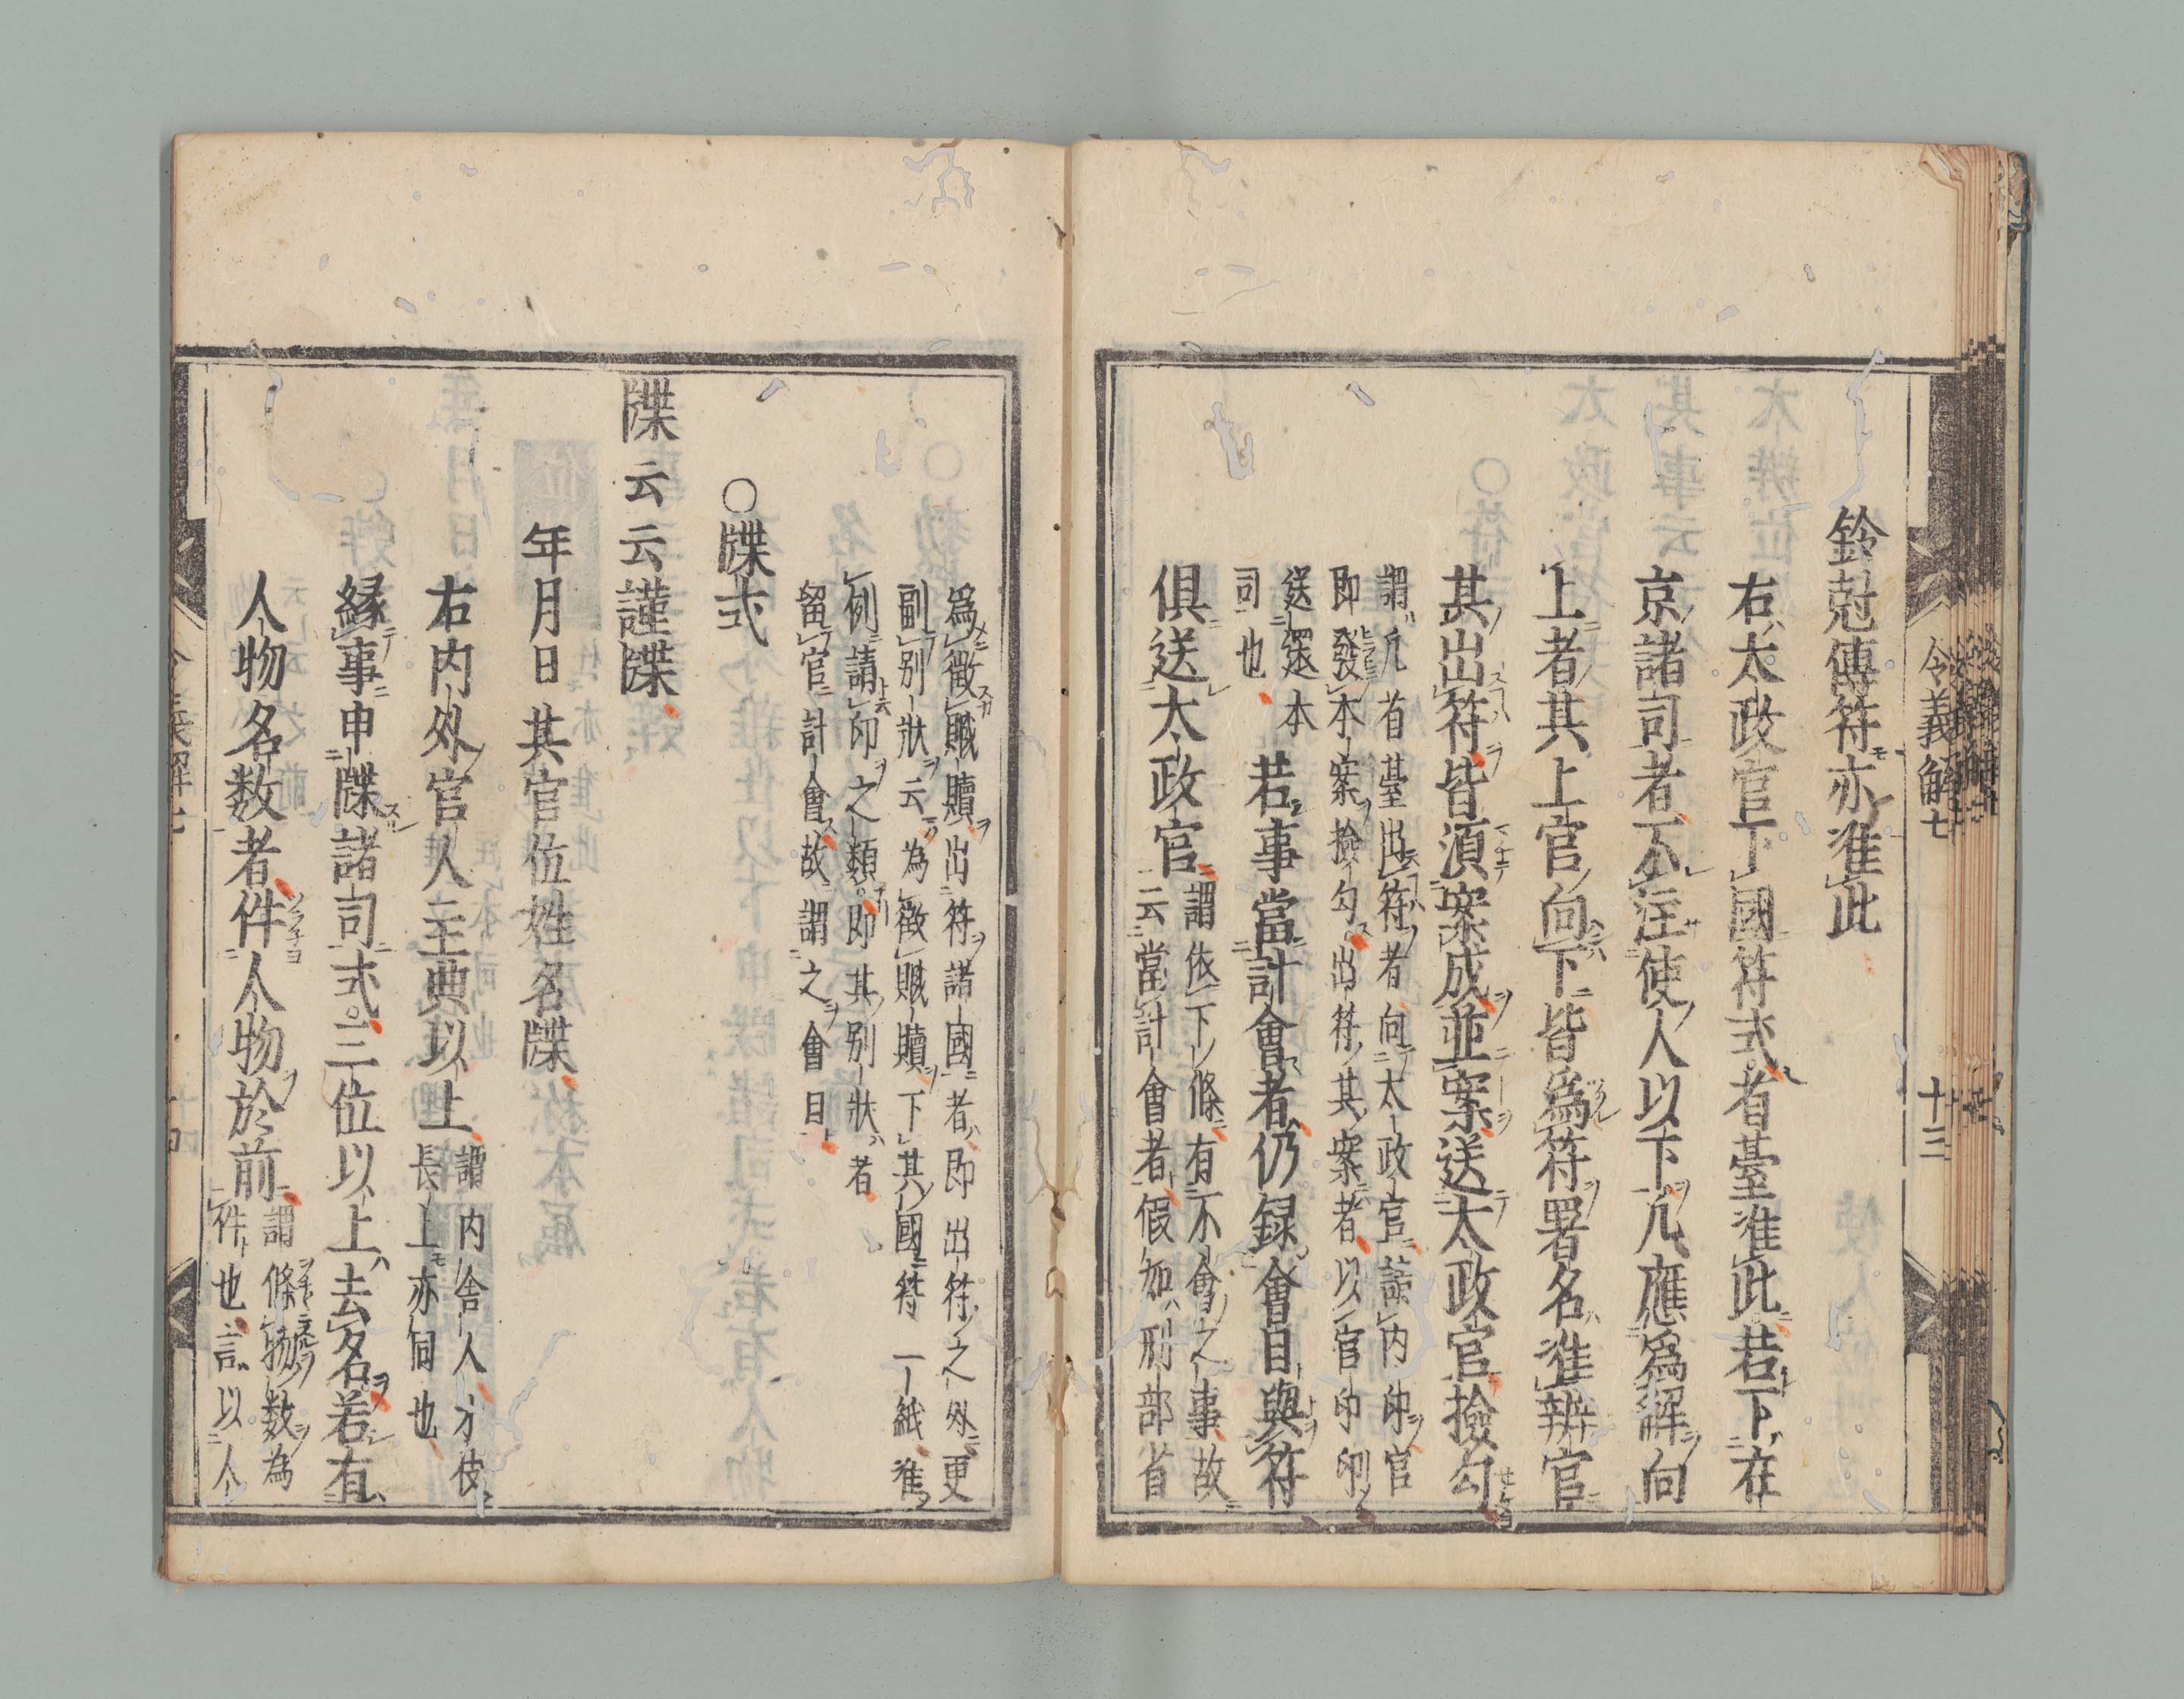 令義解七
十三
鈴尅傳符亦准此
右太政官下國符式省臺准此若下在
京諸司者不注使人以下凡應爲觧向
上者其上官向下皆爲符署名准辨官
其出符皆湏案成並案送太政官撿勾
謂凡省臺出符者向太政官請内印官
即發本案撿勾出符其案者以官印印
送還本
司也
若事當計會者仍録會目與符
俱送太政官
謂依下條有不會之事故
云當計會者假如刑部省
爲徴贓贖出符諸國者即出符之外更
副別狀云為徴贓贖下其國符一紙准
例請印之類即其別狀者
留官計會故謂之會目
○牒式
牒云云謹牒
年月日其官位姓名牒
右内外官人主典以上
謂内舎人才伎
長上亦同也
縁事申牒諸司式三位以上去名若有
人物名数者件人物於前
謂條物数為
件也言以人